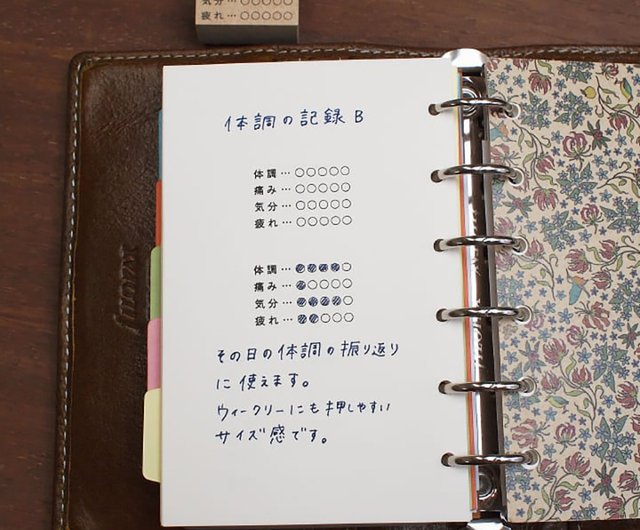 気分…○○○○○
疲れ…○○○○○
体調の記録 B
体調…○○○○○
痛み…○○○○○
気分…○○○○○
疲れ…○○○○○
体調…●●●●○
痛み…●○○○○
気分…●●●●○
疲れ…●●○○○
その日の体調の振り返り
に使えます。
ウィークリーにも押しやすい
サイズ感です。